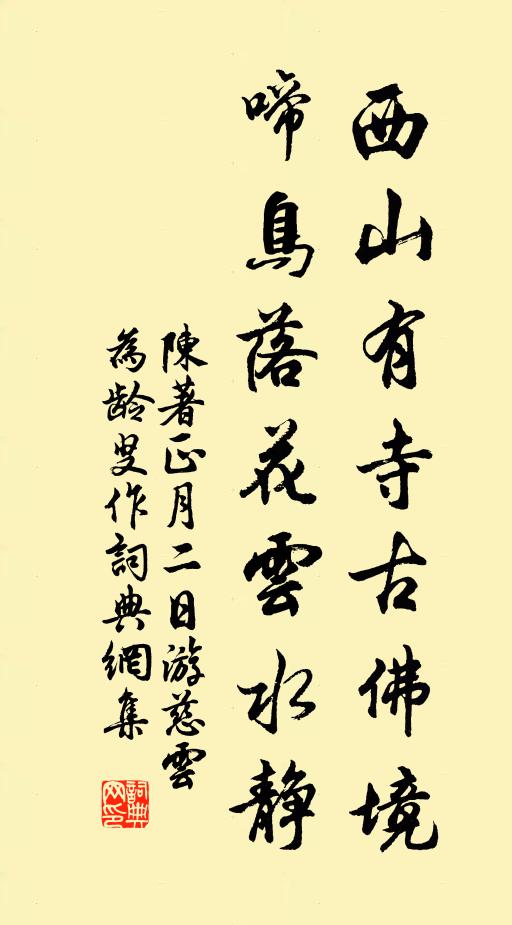 西山有寺古佛境
啼鳥落花雲水静
陳著正月二日游慈雲
為龄叟作詞典網集
詞典网印